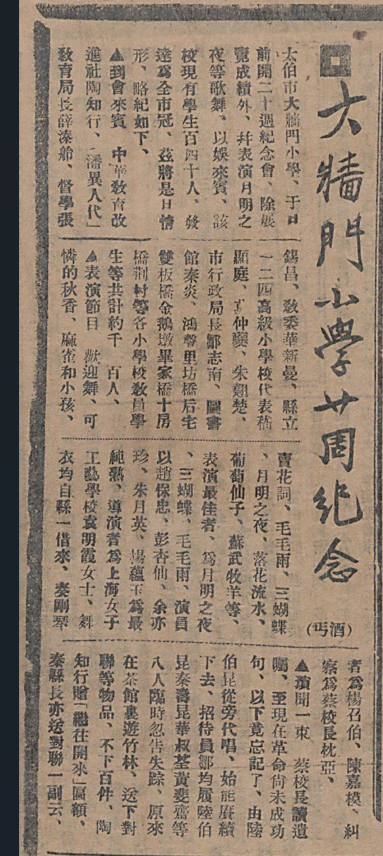 大牆門小學廿周紀念
(酒丐)
太伯市大牆門小學、于日
前開二十週紀念會、除展
覽成績外、幷表演月明之
夜等歌舞、以娛來賓、該
校現有學生百四十人、發
達爲全市冠、茲將是日情
形、略紀如下、
▲到會來賓 中華敎育改
進社陶知行、(潘異人代)
敎育局長薛溱舲 督學張
錫昌、敎委華新曼、縣立
一二四高級小學校代表
顯庭、 仲 、朱 楚、
市行政局長鄒志南、圖書
館秦炎、鴻聲里坊橋后宅
雙板橋金鵝墩單家橋十房
橋荆村等各小學校敎員學
生等共計約千 百人、
▲表演節目 歡迎舞、可
憐的秋香、麻雀和小孩、
賣花詞、毛毛雨、三蝴蝶
、月明之夜、落花流水、
葡萄仙子、蘇武牧羊等、
表演最佳者、爲月明之夜
、三蝴蝶、毛毛雨、演員
以趙保忠、彭杏仙、余亦
珍、朱月英、楊蘊玉爲最
純熟、導演者爲上海女子
工藝學校袁明霞女士、舞
衣均自縣一借來、奏剛琴
者爲楊召伯、陳嘉模、糾
察爲蔡校長枕亞、
▲瑣聞一束 蔡校長讀遺
囑、至現在革命尙未成功
句、以下竟忘記了、由陸
伯昆從旁代唱、始能賡續
下去、招待員鄒均履陸伯
昆秦壽昆華叔荃黃斐齋等
八人臨時忽告失踪、原來
在茶館裏遊竹林、送下對
聯等物品、不下百件、陶
知行贈「繼往開來」匾額、
秦縣長亦送對聯一副云、